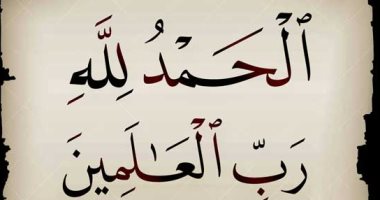 ٱلْحَمْدُ لِلَّهِ
رَبِّ ٱلْعَالَمِينَ